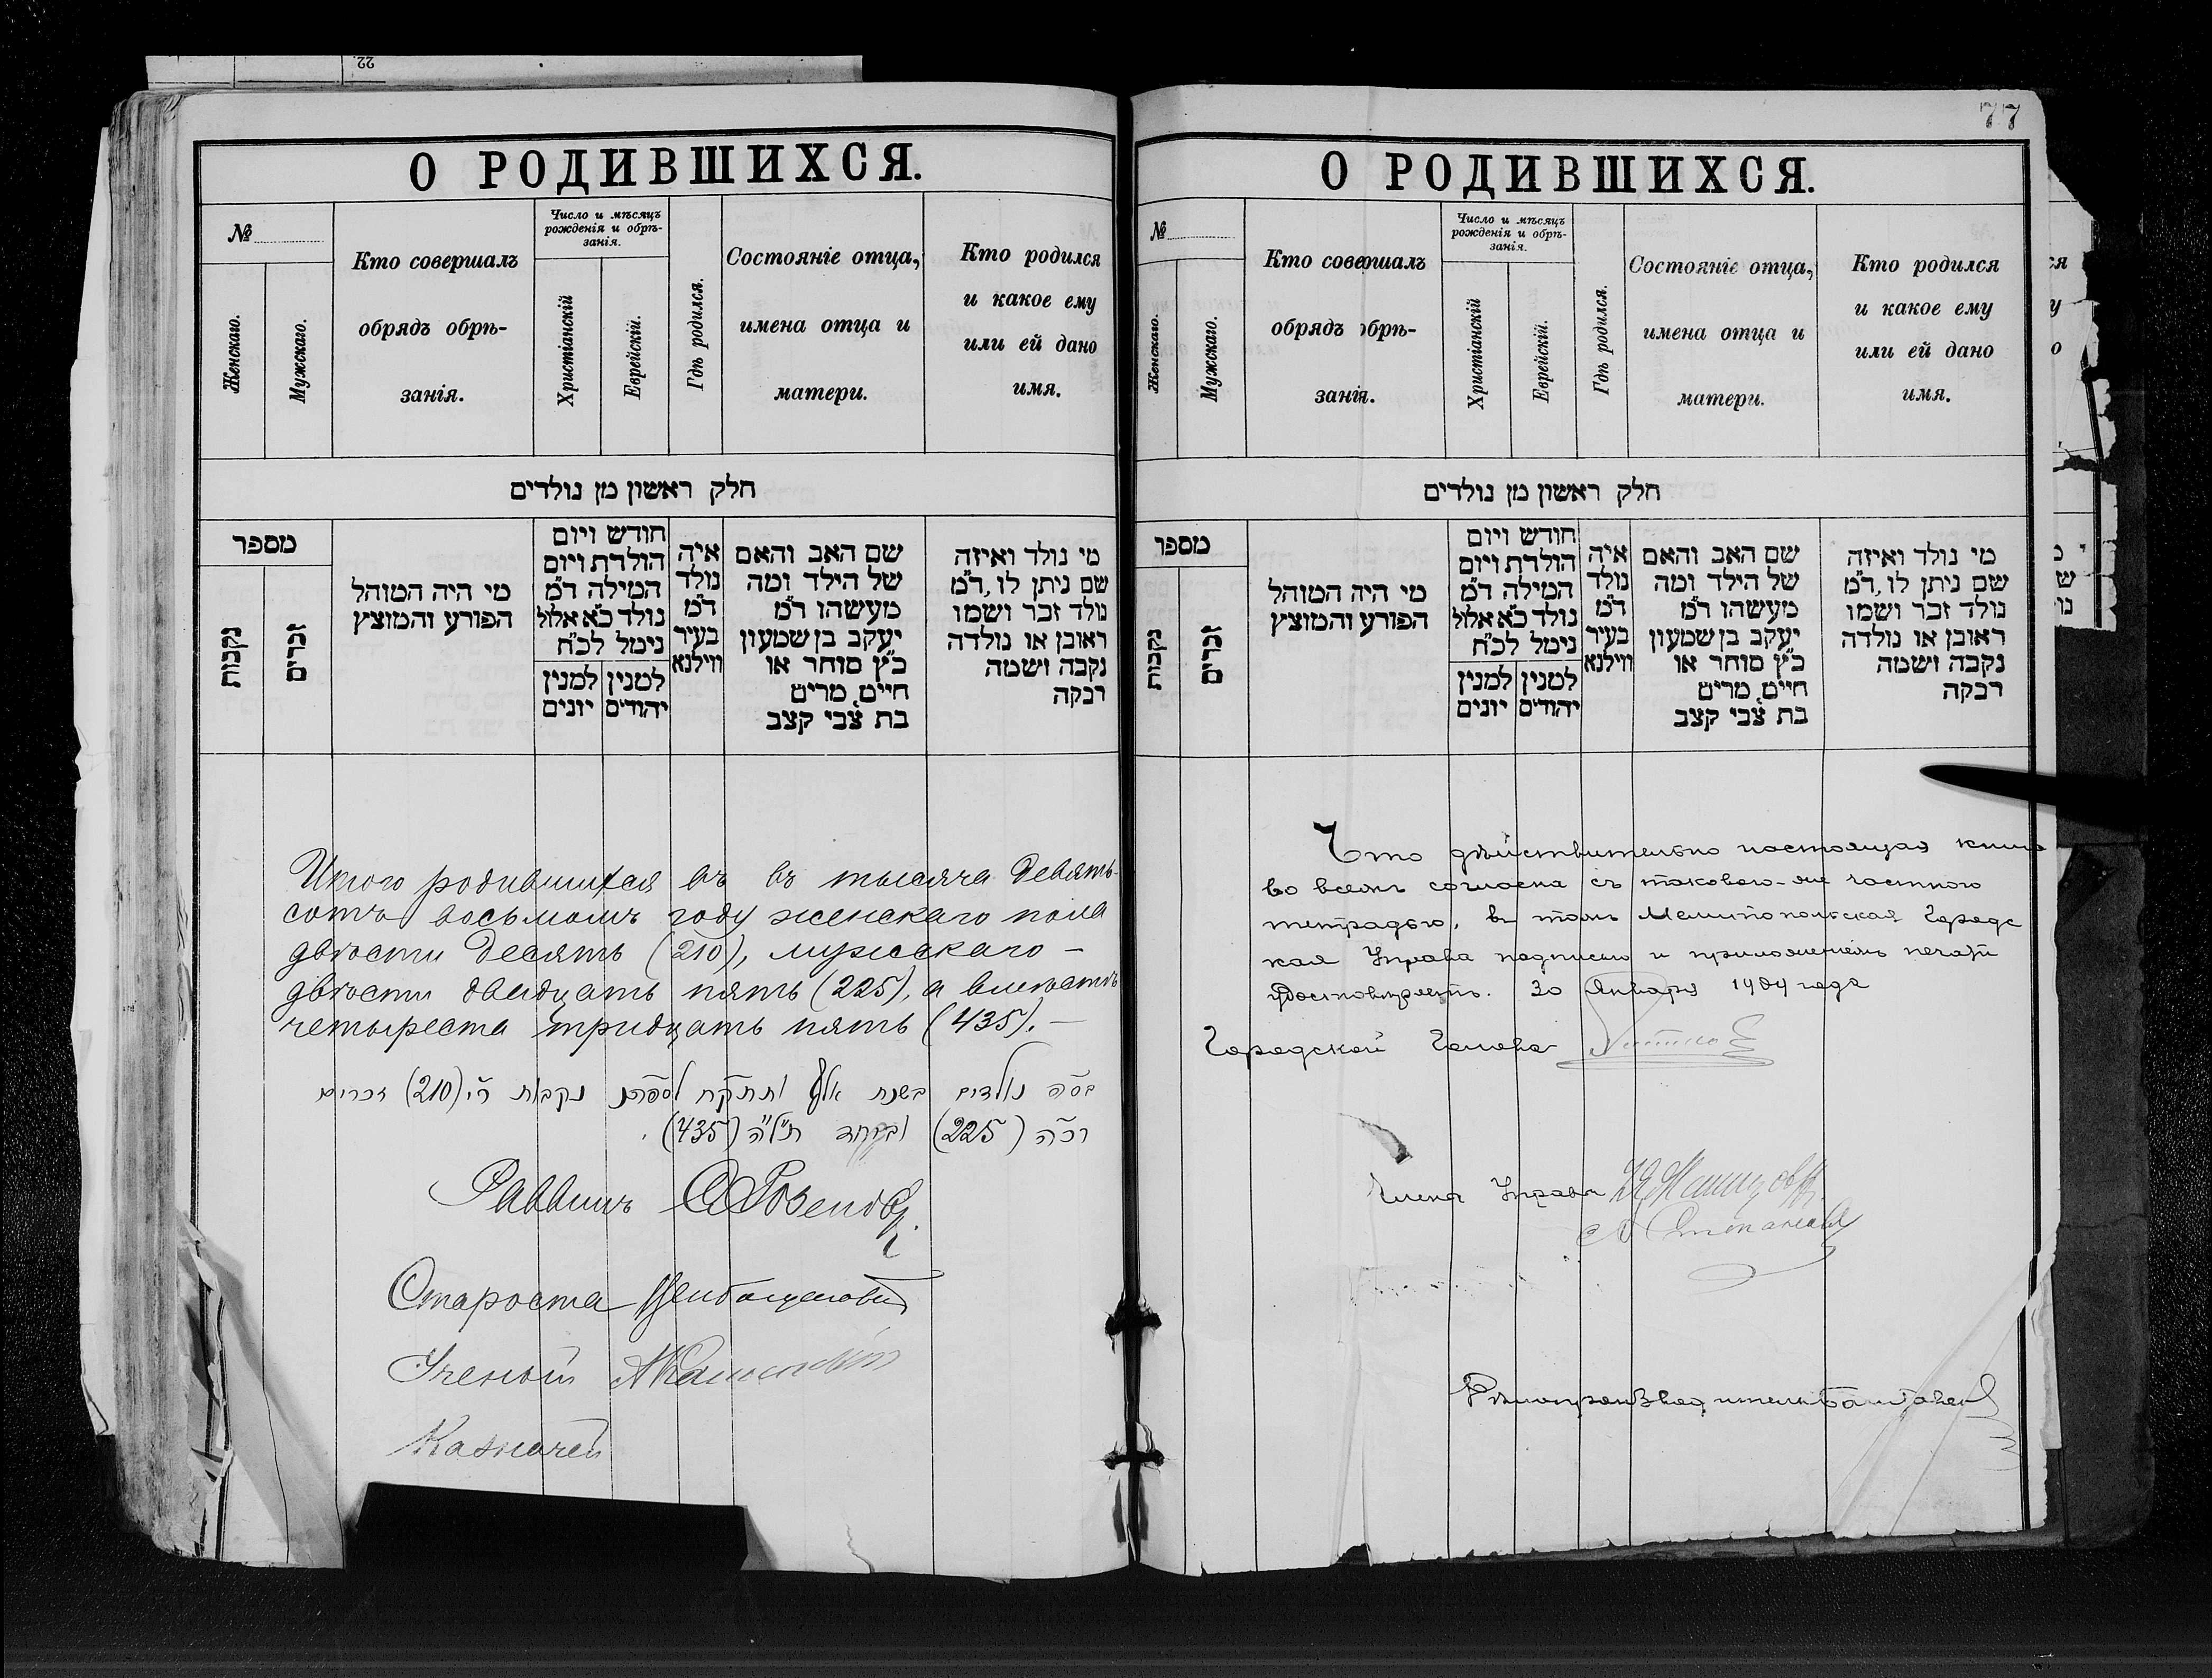 22
О РОДИВШИХСЯ.
№
Женскаго.
Мужскаго.
Кто совершалъ
обрядъ обрѣ-
занія.
Число и мѣсяцъ
рожденія и обрѣ-
занія.
Христіанскій
Еврейскій.
Гдѣ родился.
Состояніе отца,
имена отца и
матери.
Кто родился
и какое ему
или ей дано
имя.
חלק ראשון מן נולדים
מספר
נקבות
זכרים
מי היה המוהל
הפורע והמוצץ
חודש ויום
הולדת ויום
המילה ד"מ
נולד כ"א אלול
נימל לכ"ח
למנין יונים
למנין יהודים
איה
נולד
ד"מ
בעיר
ווילנא
שם האב והאם
של הילד ומה
מעשהו ד"מ
יעקב בן שמעון
כ"ץ סוחר או
חיים, מרים
בת צבי קצב
מי נולד ואיזה
שם ניתן לו, ד"מ
נולד זכר ושמו
ראובן או נולדה
נקבה ושמה
רבקה
Итого родившихся въ въ тысяча девять-
сотъ восьмомъ году женскаго пола
двѣсти десять (210), мужскаго —
двѣсти двадцать пять (225), а вмѣстѣ
четыреста тридцать пять (435). —
נולדים בשנת אלף נקבות ר"י (210) זכרים
רכ"ה (225) וביחד תל"ה (435).
Раввинъ
Староста
Ученый
Казначей
77
О РОДИВШИХСЯ.
№
Женскаго.
Мужскаго.
Кто совершалъ
обрядъ обрѣ-
занія.
Число и мѣсяцъ
рожденія и обрѣ-
занія.
Христіанскій
Еврейскій.
Гдѣ родился.
Состояніе отца,
имена отца и
матери.
Кто родился
и какое ему
или ей дано
имя.
חלק ראשון מן נולדים
מספר
נקבות
זכרים
מי היה המוהל
הפורע והמוצץ
חודש ויום
הולדת ויום
המילה ד"מ
נולד כ"א אלול
נימל לכ"ח
למנין יונים
למנין יהודים
איה
נולד
ד"מ
בעיר
ווילנא
שם האב והאם
של הילד ומה
מעשהו ד"מ
יעקב בן שמעון
כ"ץ סוחר או
חיים, מרים
בת צבי קצב
מי נולד ואיזה
שם ניתן לו, ד"מ
נולד זכר ושמו
ראובן או נולדה
נקבה ושמה
רבקה
Что дѣйствительно настоящая книга
во всемъ согласна съ таковою-же частною
тетрадью, въ томъ Мелитопольская Городс
кая Управа подписью и приложеніемъ печати
удостовѣряетъ. 30 Января 1909 года
Городской Голова
Члены Управы
Дѣлопроизводитель